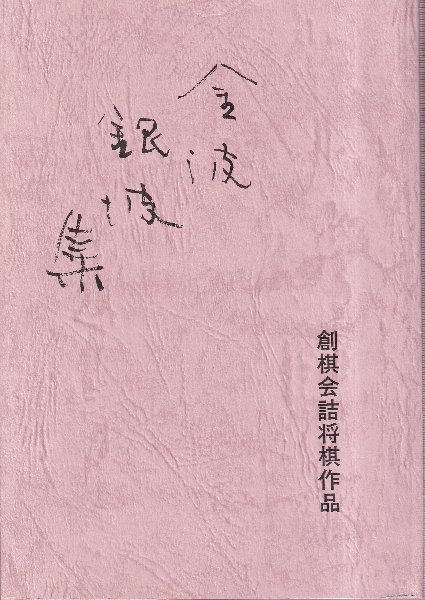 金波
銀波
集
創棋会詰将棋作品